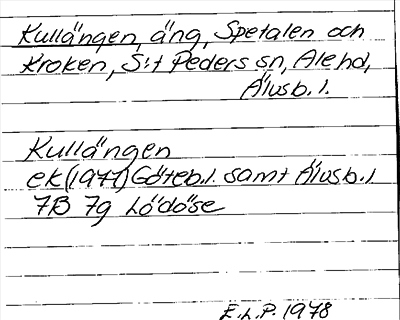 Kullängen, äng, Spetalen och
Kroken, S:t Peders sn, Ale hd,
Älvsb. l.
Kullängen
ek (1977) Göteb. l. samt Älvsb. l
7B 7g Lödöse
E.L.P. 1978